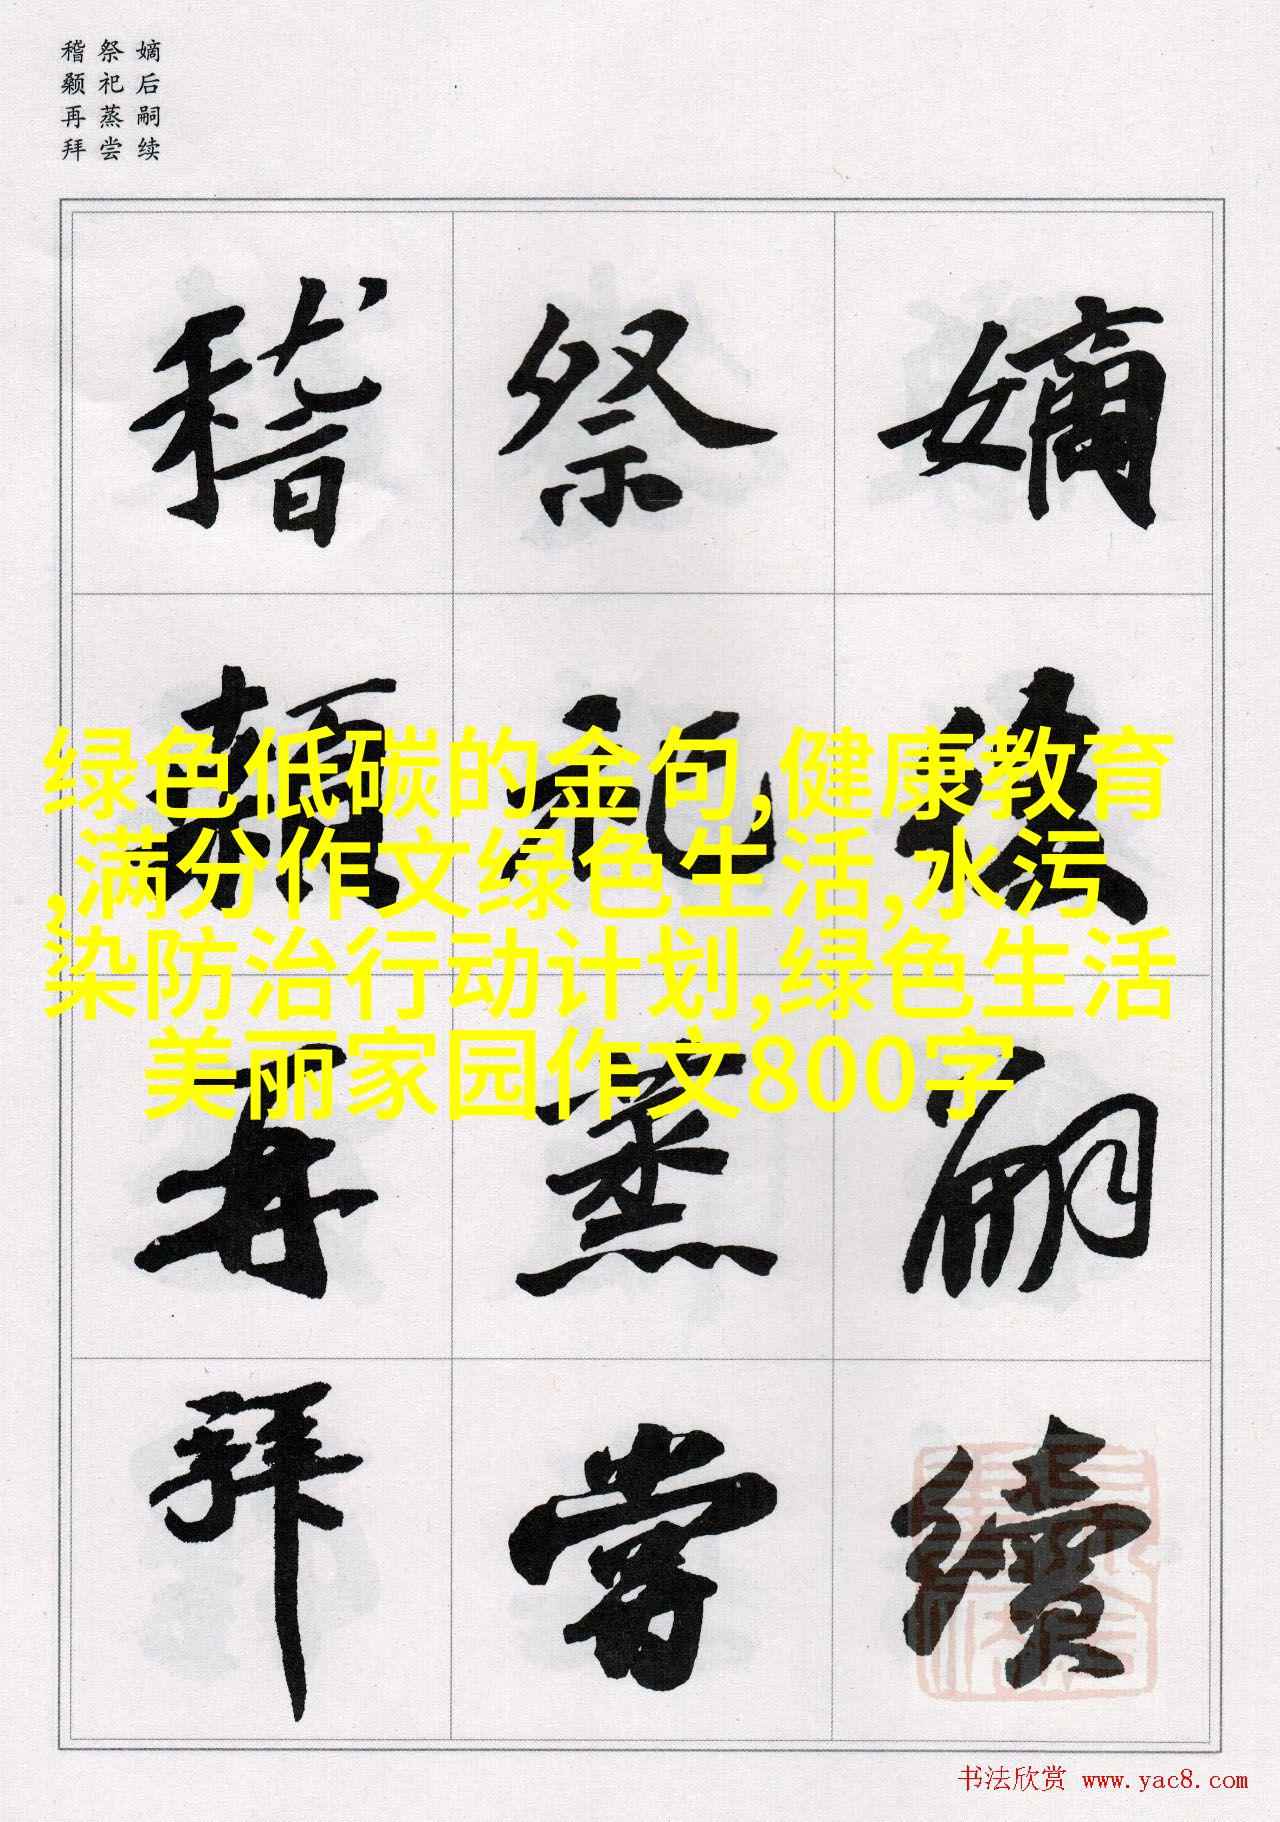 嫡后嗣续
祭祀蒸尝
稽颡再拜
嫡後嗣續
祭祀蒸嘗
稽顙再拜
绿色低碳的金句,健康教育
,满分作文绿色生活,水污
染防治行动计划,绿色生活
美丽家园作文800字
书法欣赏 www.yac8.com